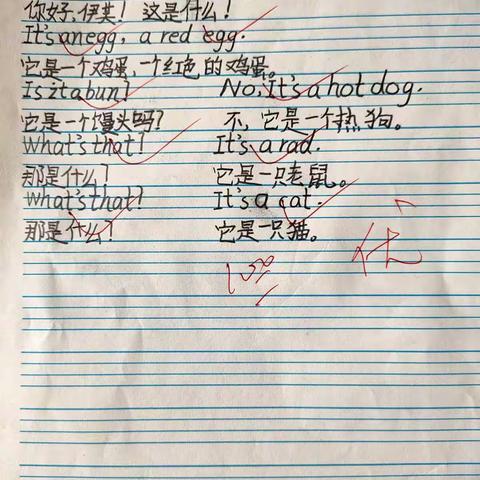 你好,伊芙! 这是什么!
It's anegg, a red egg.
它是一个鸡蛋,一个红色的鸡蛋。
Is it a bun? No. It's a hot dog.
它是一个馒头吗? 不, 它是一个热狗。
What's that! It's a rad.
那是什么? 它是一只老鼠。
What's that? It's a cat.
那是什么? 它是一只猫。
优
100